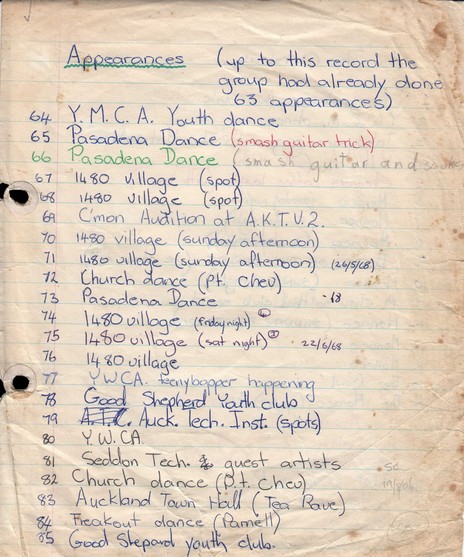 Appearances (up to this record the
group had already done
63 appearances)
64 Y.M.C.A. Youth dance
65 Pasadena Dance (smash guitar trick)
66 Pasadena Dance (smash guitar and smoke
67 1480 village (spot)
68 1480 village (spot)
69 C'mon Audition at A.K.T.V.2.
70 1480 village (sunday afternoon)
71 1480 village (sunday afternoon) (26/5/68)
72 Church dance (Pt. Chev)
73 Pasadena Dance
74 1480 village (friday night)
75 1480 village (sat night) 22/6/68
76 1480 village
77 YWCA. teenybopper happening
78 Good Shepherd Youth club
79 A.T.I. Auck. Tech. Inst. (spots)
80 Y.W.CA.
81 Seddon Tech. guest artists
82 Church dance (P.t. Chev)
83 Auckland Town Hall (Tea Rave)
84 Freakout dance (Parnell)
85 Good Shepard youth club.